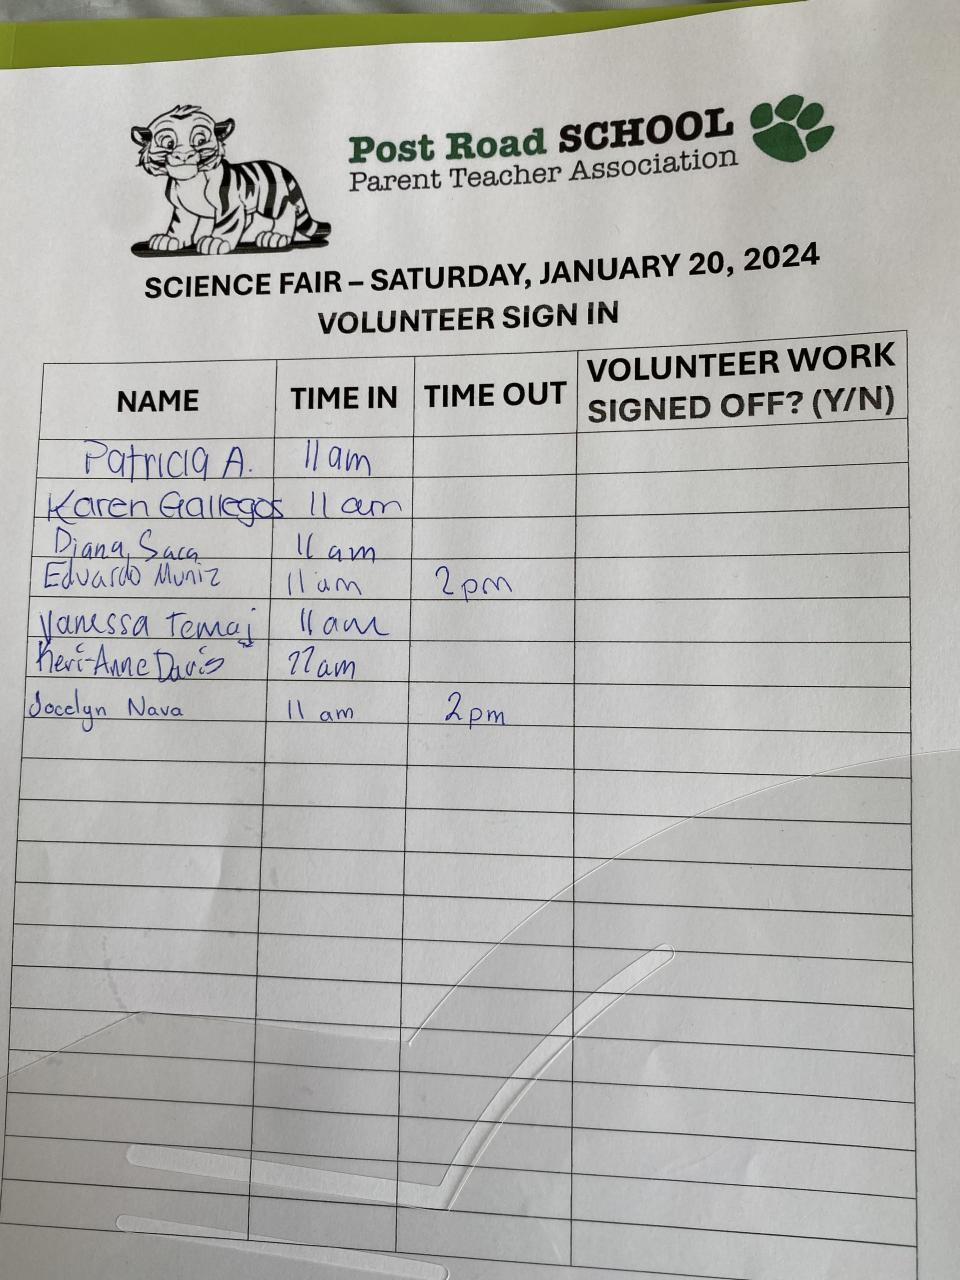 Post Road SCHOOL
Parent Teacher Association
SCIENCE FAIR – SATURDAY, JANUARY 20, 2024
VOLUNTEER SIGN IN
NAME TIME IN TIME OUT VOLUNTEER WORK SIGNED OFF? (Y/N)
Patricia A. 11 am
Karen Gallegos 11 am
Diana Saca 11 am
Eduardo Muniz 11 am 2pm
Vanessa Temaj 11 am
Keri-Anne Davis 11am
Jocelyn Nava 11 am 2pm